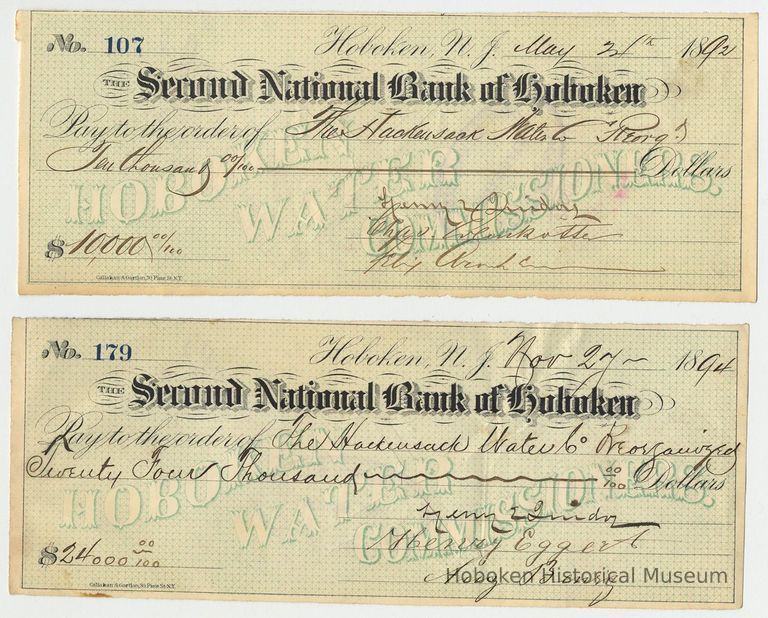 No. 107 Hoboken, N. J. May 1892
THE Second National Bank of Hoboken
Pay to the order of The Hackensack Water Co Reorg'd
Ten thousand 00/100 Dollars
HOBOKEN WATER COMMISSIONERS.
Henry
Chas.
$ 10,000 00/100
Callahan & Gordian, 30 Pine St. N.Y.
No. 179 Hoboken, N. J. Nov 27 1894
THE Second National Bank of Hoboken
Pay to the order of The Hackensack Water Co Reorganized
Twenty Four Thousand 00/100 Dollars
HOBOKEN WATER COMMISSIONERS.
Henry
Henry Eggers
$ 24000 00/100
Callahan & Gordian, 30 Pine St. N.Y.
Hoboken Historical Museum